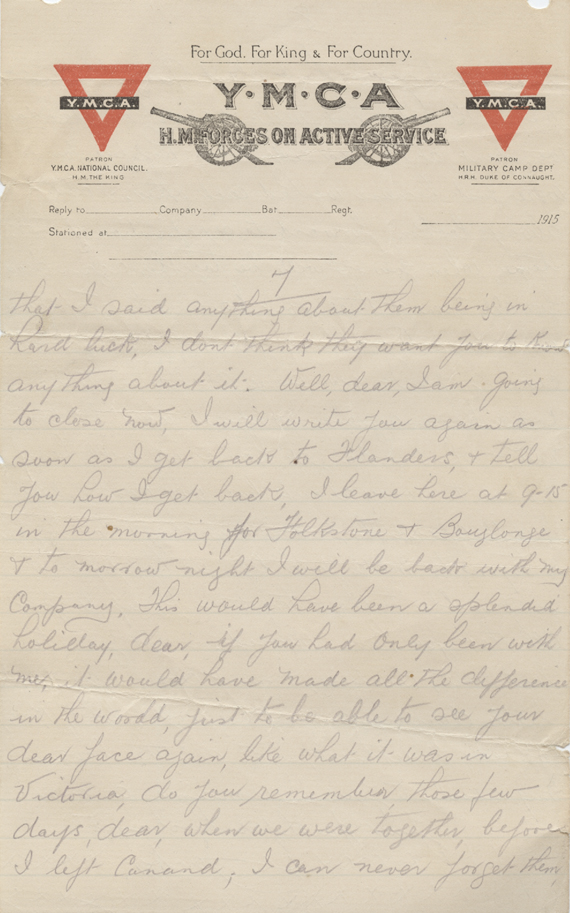 For God. For King & For Country.
Y·M·C·A
H.M. FORCES ON ACTIVE SERVICE
Y.M.C.A.
PATRON
Y.M.C.A. NATIONAL COUNCIL.
H.M. THE KING
Y.M.C.A.
PATRON
MILITARY CAMP DEPT
H.R.H. DUKE OF CONNAUGHT.
Reply to Company Bat. Regt.
Stationed at
1915
7
that I said anything about them being in
hard luck, I dont think they want you to know
anything about it. Well, dear, I am going
to close now, I will write you again as
soon as I get back to Flanders, & tell
you how I get back, I leave here at 9-15
in the morning for Folkstone & Bouglonge
& to morrow night I will be back with my
Company, This would have been a splendid
holiday, dear, if you had only been with
me, it would have made all the difference
in the woodd, just to be able to see your
dear face again, like what it was in
Victoria, do you remember, those few
days, dear, when we were together, before
I left Canand, I can never forget them,